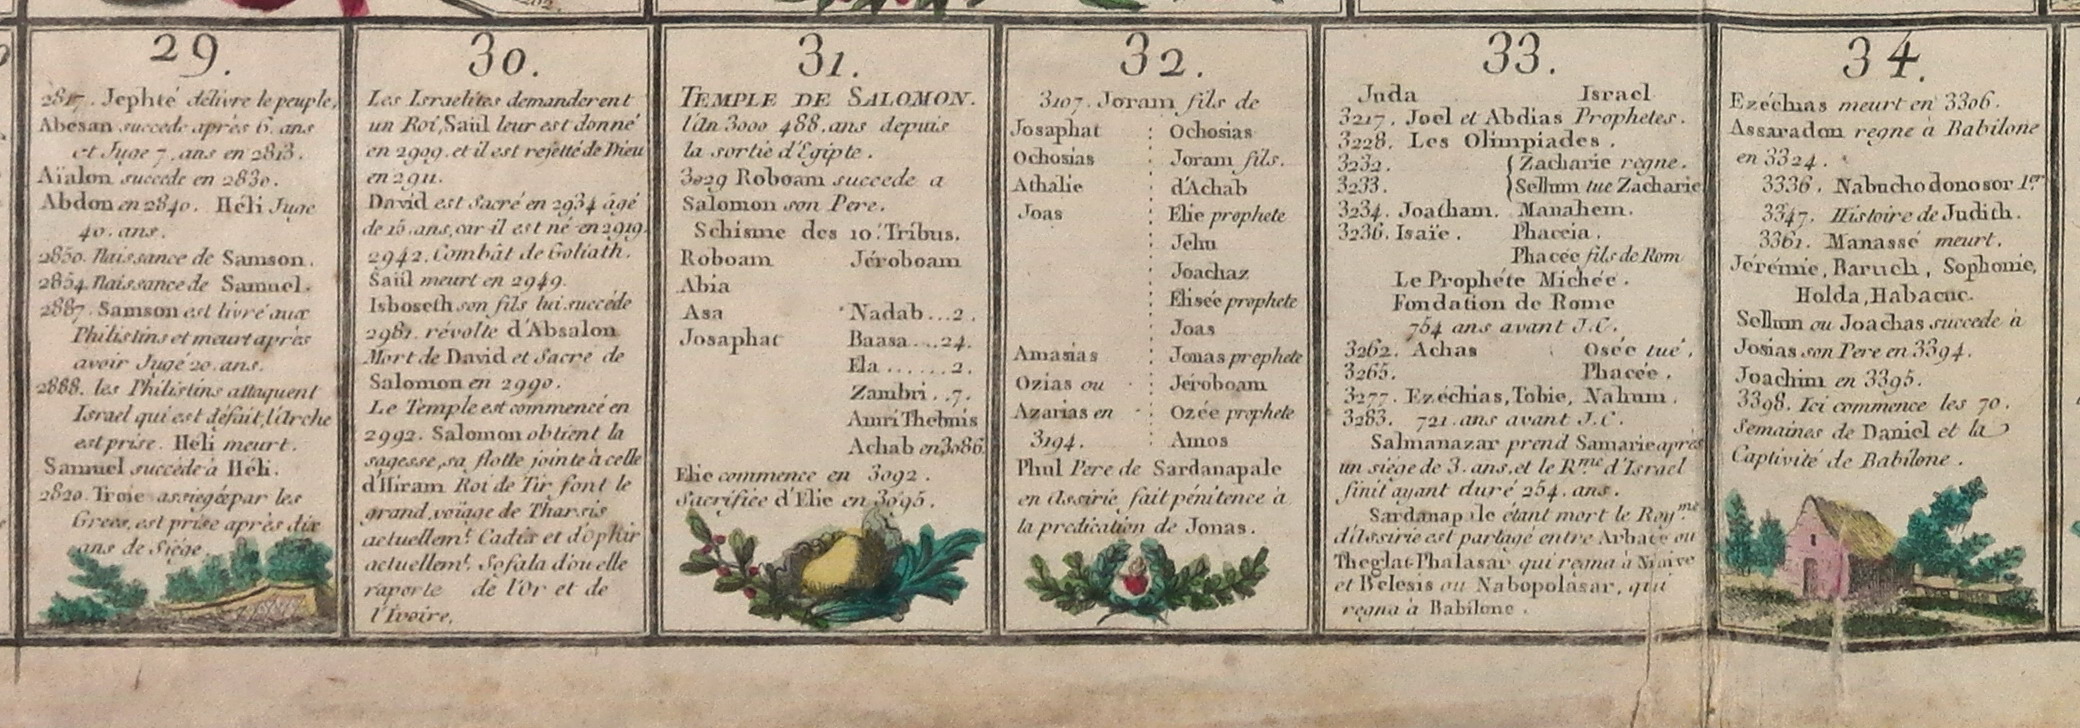 29.
2817. Jephté délivre le peuple,
Abesan succede après 6. ans
et Juge 7. ans en 2813.
Aïalon succede en 2830.
Abdon en 2840. Héli Juge
40. ans.
2850. Naissance de Samson.
2854. Naissance de Samuel.
2887. Samson est livré aux
Philistins et meurt après
avoir Jugé 20. ans.
2888. les Philistins attaquent
Israel qui est défait, l'Arche
est prise. Héli meurt.
Samuel succéde à Héli.
2820. Troie assiegée par les
Grecs, est prise après dix
ans de Siége.
30.
Les Israelites demanderent
un Roi, Saül leur est donné
en 2909. et il est rejetté de Dieu
en 2911.
David est Sacré en 2934 âgé
de 15. ans, car il est né en 2919.
2942. Combât de Goliath.
Saül meurt en 2949.
Isboseth son fils lui succéde
2981. révolte d'Absalon
Mort de David et Sacre de
Salomon en 2990.
Le Temple est commencé en
2992. Salomon obtient la
sagesse, sa flotte jointe à celle
d'Hiram Roi de Tir font le
grand voiage de Tharsis
actuellemt. Cadix et d'ophir
actuellemt. Sofala d'ou elle
raporte de l'Or et de
l'Ivoire.
31.
TEMPLE DE SALOMON.
l'An 3000 488. ans depuis
la sortie d'Egipte.
3029 Roboam succede a
Salomon son Pere.
Schisme des 10. Tribus.
Roboam Jéroboam
Abia
Asa Nadab...2.
Josaphat Baasa...24.
Ela......2.
Zambri..7.
Amri Thebnis
Achab en 3086.
Elie commence en 3092.
Sacrifice d'Elie en 3095.
32.
3107. Joram fils de
Josaphat : Ochosias
Ochosias : Joram fils.
Athalie : d'Achab
Joas : Elie prophete
: Jehu
: Joachaz
: Elisée prophete
: Joas
Amasias : Jonas prophete
Ozias ou : Jéroboam
Azarias en : Ozée prophete
3194. : Amos
Phul Pere de Sardanapale
en Assirie, fait pénitence à
la predication de Jonas.
33.
Juda Israel
3217. Joel et Abdias Prophetes.
3228. Les Olimpiades.
3232. { Zacharie regne.
3233. { Sellum tue Zacharie
3234. Joatham. Manahem.
3236. Isaïe. Phaceia.
Phacée fils de Rom
Le Prophéte Michée.
Fondation de Rome
754 ans avant J.C.
3262. Achas Osée tué.
3265. Phacée.
3277. Ezéchias, Tobie, Nahum.
3283. 721. ans avant J.C.
Salmanazar prend Samarie après
un siége de 3. ans. et le Rme. d'Israel
finit ayant duré 254. ans.
Sardanapale étant mort le Royme.
d'Assirie est partagé entre Arbace ou
Theglat-Phalasar qui regna à Ninive
et Belesis ou Nabopolasar, qui
regna à Babilone.
34.
Ezéchias meurt en 3306.
Assaradon regne à Babilone
en 3324.
3336. Nabuchodonosor 1er
3347. Histoire de Judith.
3361. Manassé meurt.
Jérémie, Baruch, Sophonie,
Holda, Habacuc.
Sellum ou Joachas succede à
Josias son Pere en 3394.
Joachim en 3395.
3398. Ici commence les 70.
Semaines de Daniel et la
Captivité de Babilone.